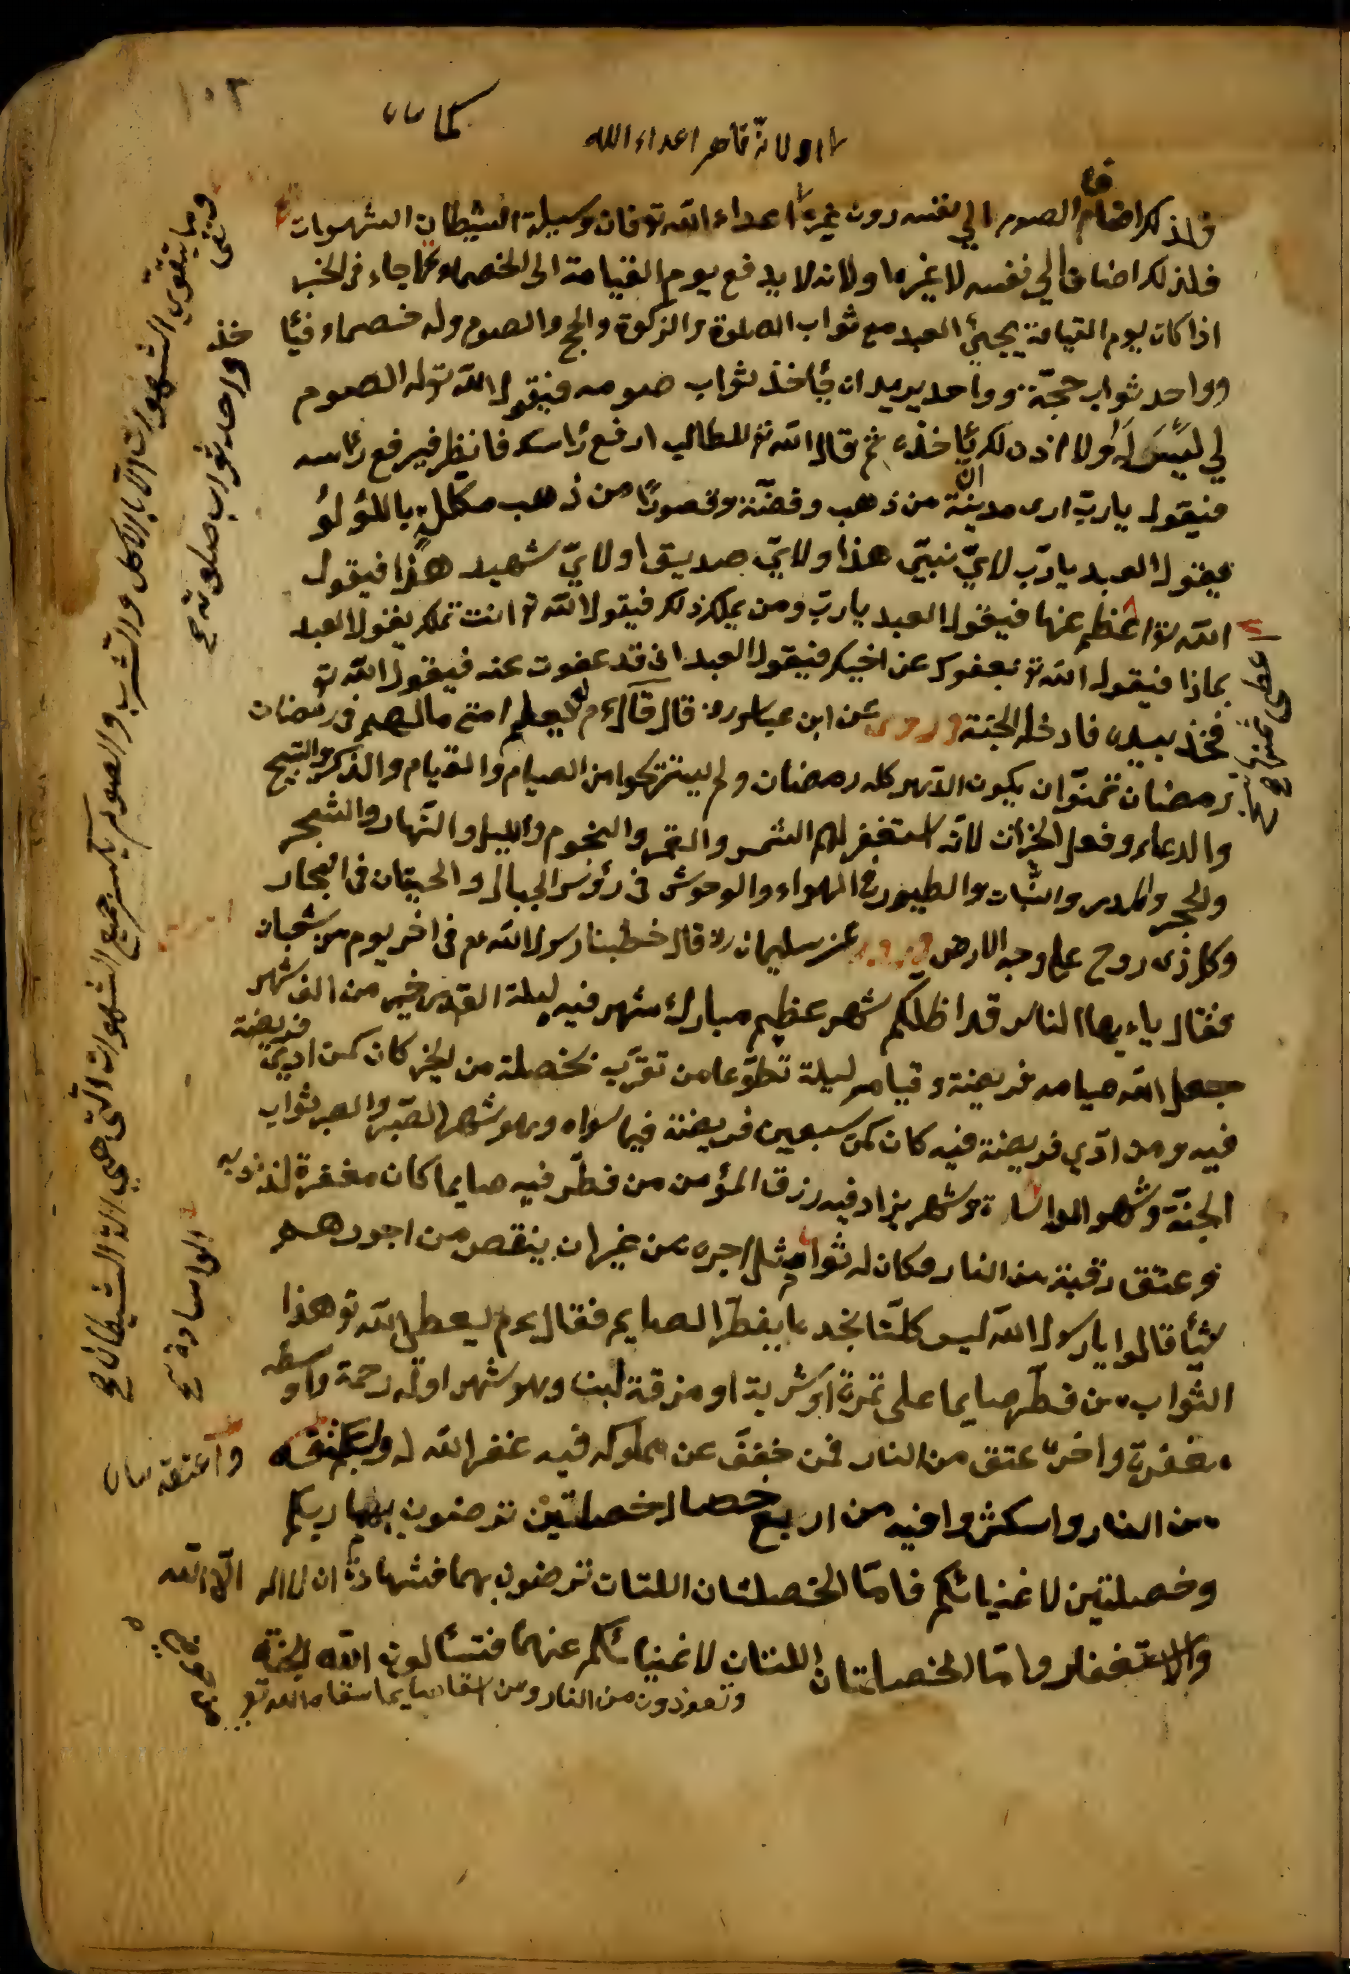 ١٠٢
كما
لانه قاهر اعداء الله
فلذلك اضاف الصوم الي نفسه دون غيره اعداء الله تع فان وسيلة الشيطان الشهوات
فلذلك اضاف الي نفسه لا غيرها ولانه لا يدفع يوم القيامة الى الخصماء كما جاء في الخبر
اذا كان يوم القيامة يجيئ العبد مع ثواب الصلوة والزكوة والحج والصوم وله خصماء فيأ
وواحد ثواب حجّة وواحد يريد ان يأخذ ثواب صومه فيقول الله تع له الصوم
لي ليس له ولا اذن لك يأخذه ثم قال الله تع للطالب ارفع رأسك فانظر فيرفع رأسه
فيقول يارب ارى مدينة من ذهب وفضّة وقصورًا من ذهب مكلّل باللؤلؤ
فيقول العبد يارّب لايّ نبيّ هذا ولايّ صديق اولايّ شهيد هذا فيقول
الله تع اعظم عنها فيقول العبد يارب ومن يملك ذلك فيقول الله تع انت تملك يقول العبد
بماذا فيقول الله تع بعفوك عن اخيك فيقول العبد اني قد عفوت عنه فيقول الله تع
فخذ بيده فادخله الجنة وروى عن ابن عباس رض قال قال عم لو يعلم امتي مالهم في رمضان
رمضان تمنّوا ان يكون الدّهر كله رمضان ولم يتركوا من الصيام والقيام والذكر والتسبيح
والدعاء وفعل الخيرات لانّه استغفر لهم الشمس والقمر والنجوم والليل والنّهار والشجر
والحجر والمدر والنّبات والطيور في الهواء والوحوش في رؤس الجبال والحيتان في البحار
وكل ذى روح على وجه الارض وروى عن سليمان رض قال خطبنا رسول الله عم فى اخر يوم من شعبان
فقال ياءيها الناس قد اظلكم شهر عظيم مبارك شهر فيه ليلة القدر خير من الف شهر
جعل الله صيامه فريضة وقيام ليلة تطوّعا من تقرّب بخصلة من الخير كان كمن ادي فريضة
فيه ومن ادّي فريضة فيه كان كمن سبعين فريضة فيما سواه وهو شهر الصّبر والصبر ثواب
الجنّة وشهر المواساة وشهر يزاد فيه رزق المؤمن من فطّر فيه صايما كان مغفرة لذنوبه
وعتق رقبة من النار وكان له ثواب مثل اجره من غير ان ينقص من اجورهم
شيأ قالوا يا رسول الله ليس كلّنا يجد ما يفطّر الصايم فقال عم يعطى الله تع هذا
الثواب من فطّر صايما على تمرة او شربة او مزقة لبن وهو شهر اوّله رحمة واوسطه
مغفرة واخره عتق من النار فمن خفف عن مملوكه فيه غفر الله له
من النار واسكثروا فيه من اربع خصال خصلتين ترضون بهما ربكم
وخصلتين لا غنيا لكم فامّا الخصلتان اللتان ترضون بهما فشهادة ان لا اله الّا الله
والاستغفار وامّا الخصلتان اللتان لا غنيا لكم عنهما فتسألون الله الجنّة
وتعوذون من النار ومن اسقا صايما سقاه الله تع
وما يتقوى الشهوات الا بالاكل والشرب والصوم يكسر جميع الشهوات الّتي هي الة الشيطان صح
خذ واحد ثواب صلوته صح
المواساة صح
واعتقه
اعطى ثمنها صح